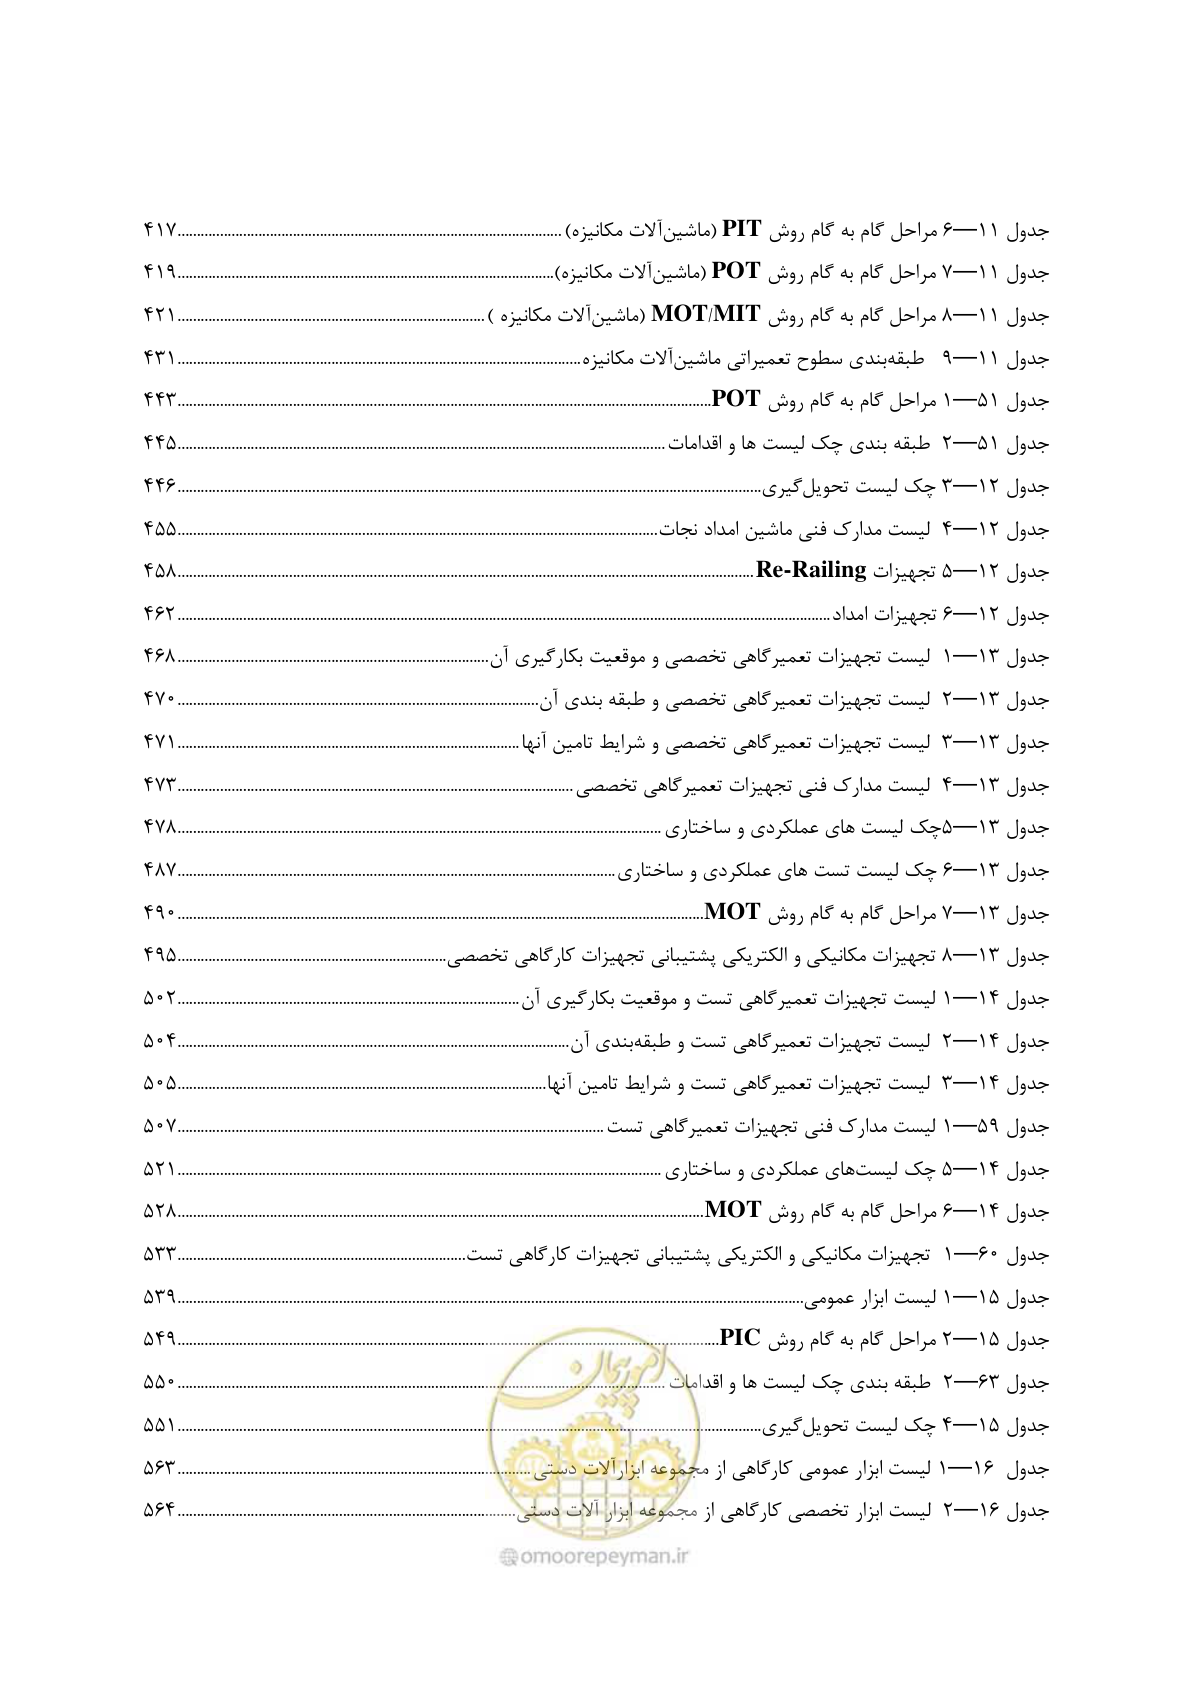 جدول ۱۱—۶ مراحل گام به گام روش PIT (ماشین‌آلات مکانیزه)........۴۱۷
جدول ۱۱—۷ مراحل گام به گام روش POT (ماشین‌آلات مکانیزه)........۴۱۹
جدول ۱۱—۸ مراحل گام به گام روش MOT/MIT (ماشین‌آلات مکانیزه )........۴۲۱
جدول ۱۱—۹ طبقه‌بندی سطوح تعمیراتی ماشین‌آلات مکانیزه........۴۳۱
جدول ۵۱—۱ مراحل گام به گام روش POT........۴۴۳
جدول ۵۱—۲ طبقه بندی چک لیست ها و اقدامات........۴۴۵
جدول ۱۲—۳ چک لیست تحویل‌گیری........۴۴۶
جدول ۱۲—۴ لیست مدارک فنی ماشین امداد نجات........۴۵۵
جدول ۱۲—۵ تجهیزات Re-Railing........۴۵۸
جدول ۱۲—۶ تجهیزات امداد........۴۶۲
جدول ۱۳—۱ لیست تجهیزات تعمیرگاهی تخصصی و موقعیت بکارگیری آن........۴۶۸
جدول ۱۳—۲ لیست تجهیزات تعمیرگاهی تخصصی و طبقه بندی آن........۴۷۰
جدول ۱۳—۳ لیست تجهیزات تعمیرگاهی تخصصی و شرایط تامین آنها........۴۷۱
جدول ۱۳—۴ لیست مدارک فنی تجهیزات تعمیرگاهی تخصصی........۴۷۳
جدول ۱۳—۵چک لیست های عملکردی و ساختاری........۴۷۸
جدول ۱۳—۶ چک لیست تست های عملکردی و ساختاری........۴۸۷
جدول ۱۳—۷ مراحل گام به گام روش MOT........۴۹۰
جدول ۱۳—۸ تجهیزات مکانیکی و الکتریکی پشتیبانی تجهیزات کارگاهی تخصصی........۴۹۵
جدول ۱۴—۱ لیست تجهیزات تعمیرگاهی تست و موقعیت بکارگیری آن........۵۰۲
جدول ۱۴—۲ لیست تجهیزات تعمیرگاهی تست و طبقه‌بندی آن........۵۰۴
جدول ۱۴—۳ لیست تجهیزات تعمیرگاهی تست و شرایط تامین آنها........۵۰۵
جدول ۵۹—۱ لیست مدارک فنی تجهیزات تعمیرگاهی تست........۵۰۷
جدول ۱۴—۵ چک لیست‌های عملکردی و ساختاری........۵۲۱
جدول ۱۴—۶ مراحل گام به گام روش MOT........۵۲۸
جدول ۶۰—۱ تجهیزات مکانیکی و الکتریکی پشتیبانی تجهیزات کارگاهی تست........۵۳۳
جدول ۱۵—۱ لیست ابزار عمومی........۵۳۹
جدول ۱۵—۲ مراحل گام به گام روش PIC........۵۴۹
جدول ۶۳—۲ طبقه بندی چک لیست ها و اقدامات........۵۵۰
جدول ۱۵—۴ چک لیست تحویل‌گیری........۵۵۱
جدول ۱۶—۱ لیست ابزار عمومی کارگاهی از مجموعه ابزارآلات دستی........۵۶۳
جدول ۱۶—۲ لیست ابزار تخصصی کارگاهی از مجموعه ابزار آلات دستی........۵۶۴
امور پیمان
@omoorepeyman.ir